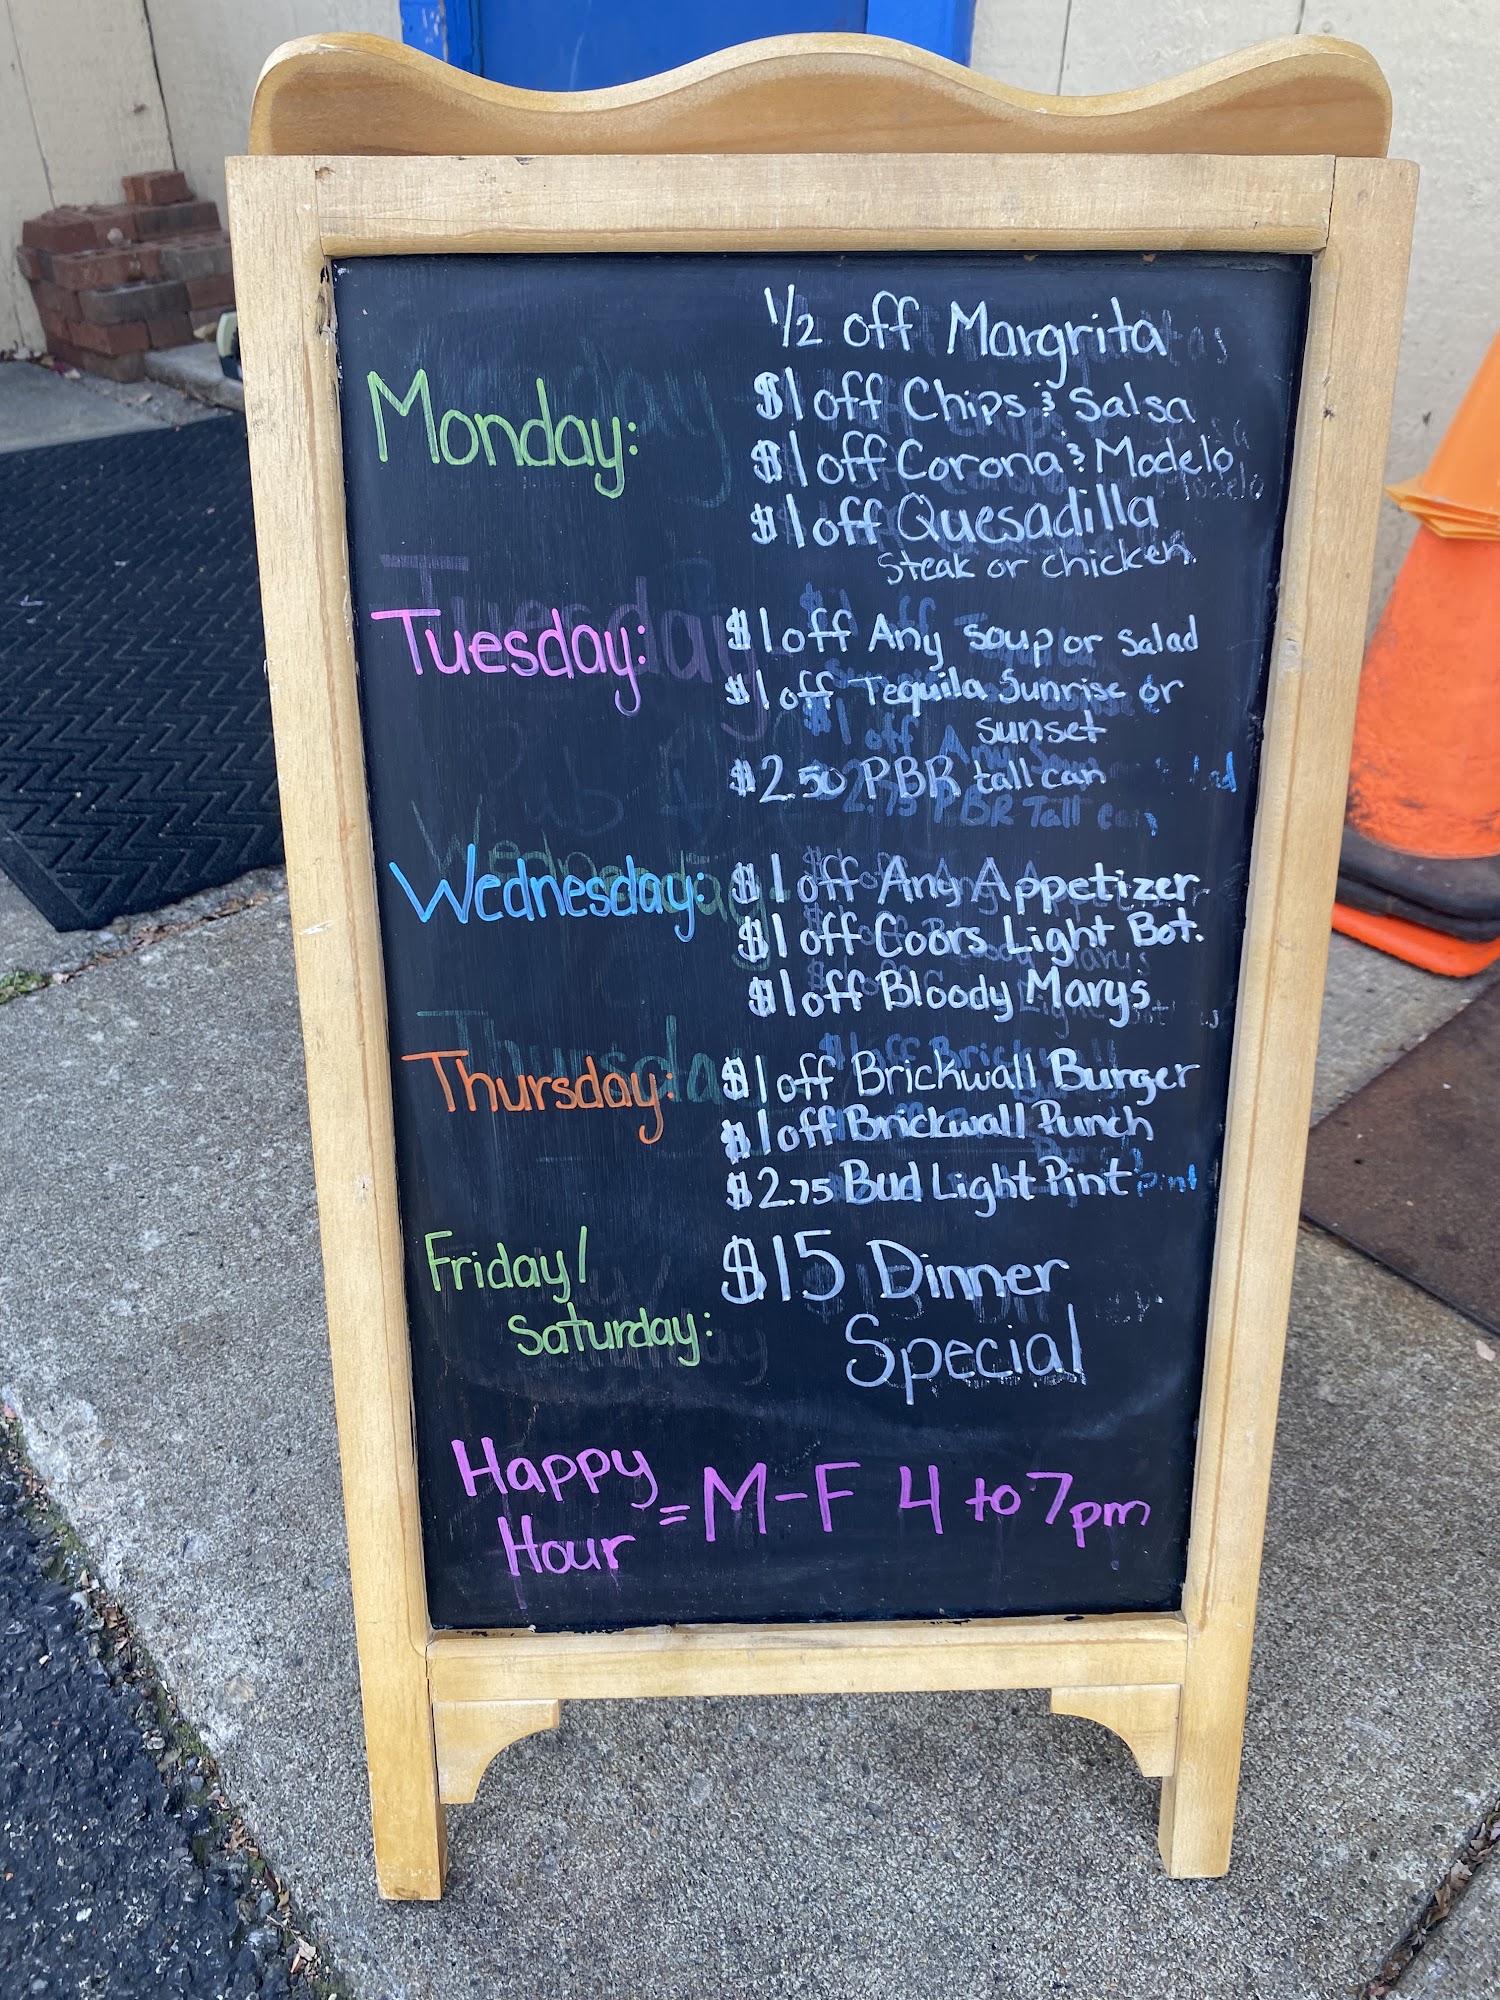 Monday:
1/2 off Margrita
$1 off Chips & Salsa
$1 off Corona & Modelo
$1 off Quesadilla
Steak or chicken
Tuesday:
$1 off Any Soup or Salad
$1 off Tequila Sunrise or
sunset
$2.50 PBR tall can
Wednesday:
$1 off Any Appetizer
$1 off Coors Light Bot.
$1 off Bloody Marys
Thursday:
$1 off Brickwall Burger
$1 off Brickwall Punch
$2.75 Bud Light Pint
Friday/
Saturday:
$15 Dinner
Special
Happy
Hour = M-F 4 to 7pm